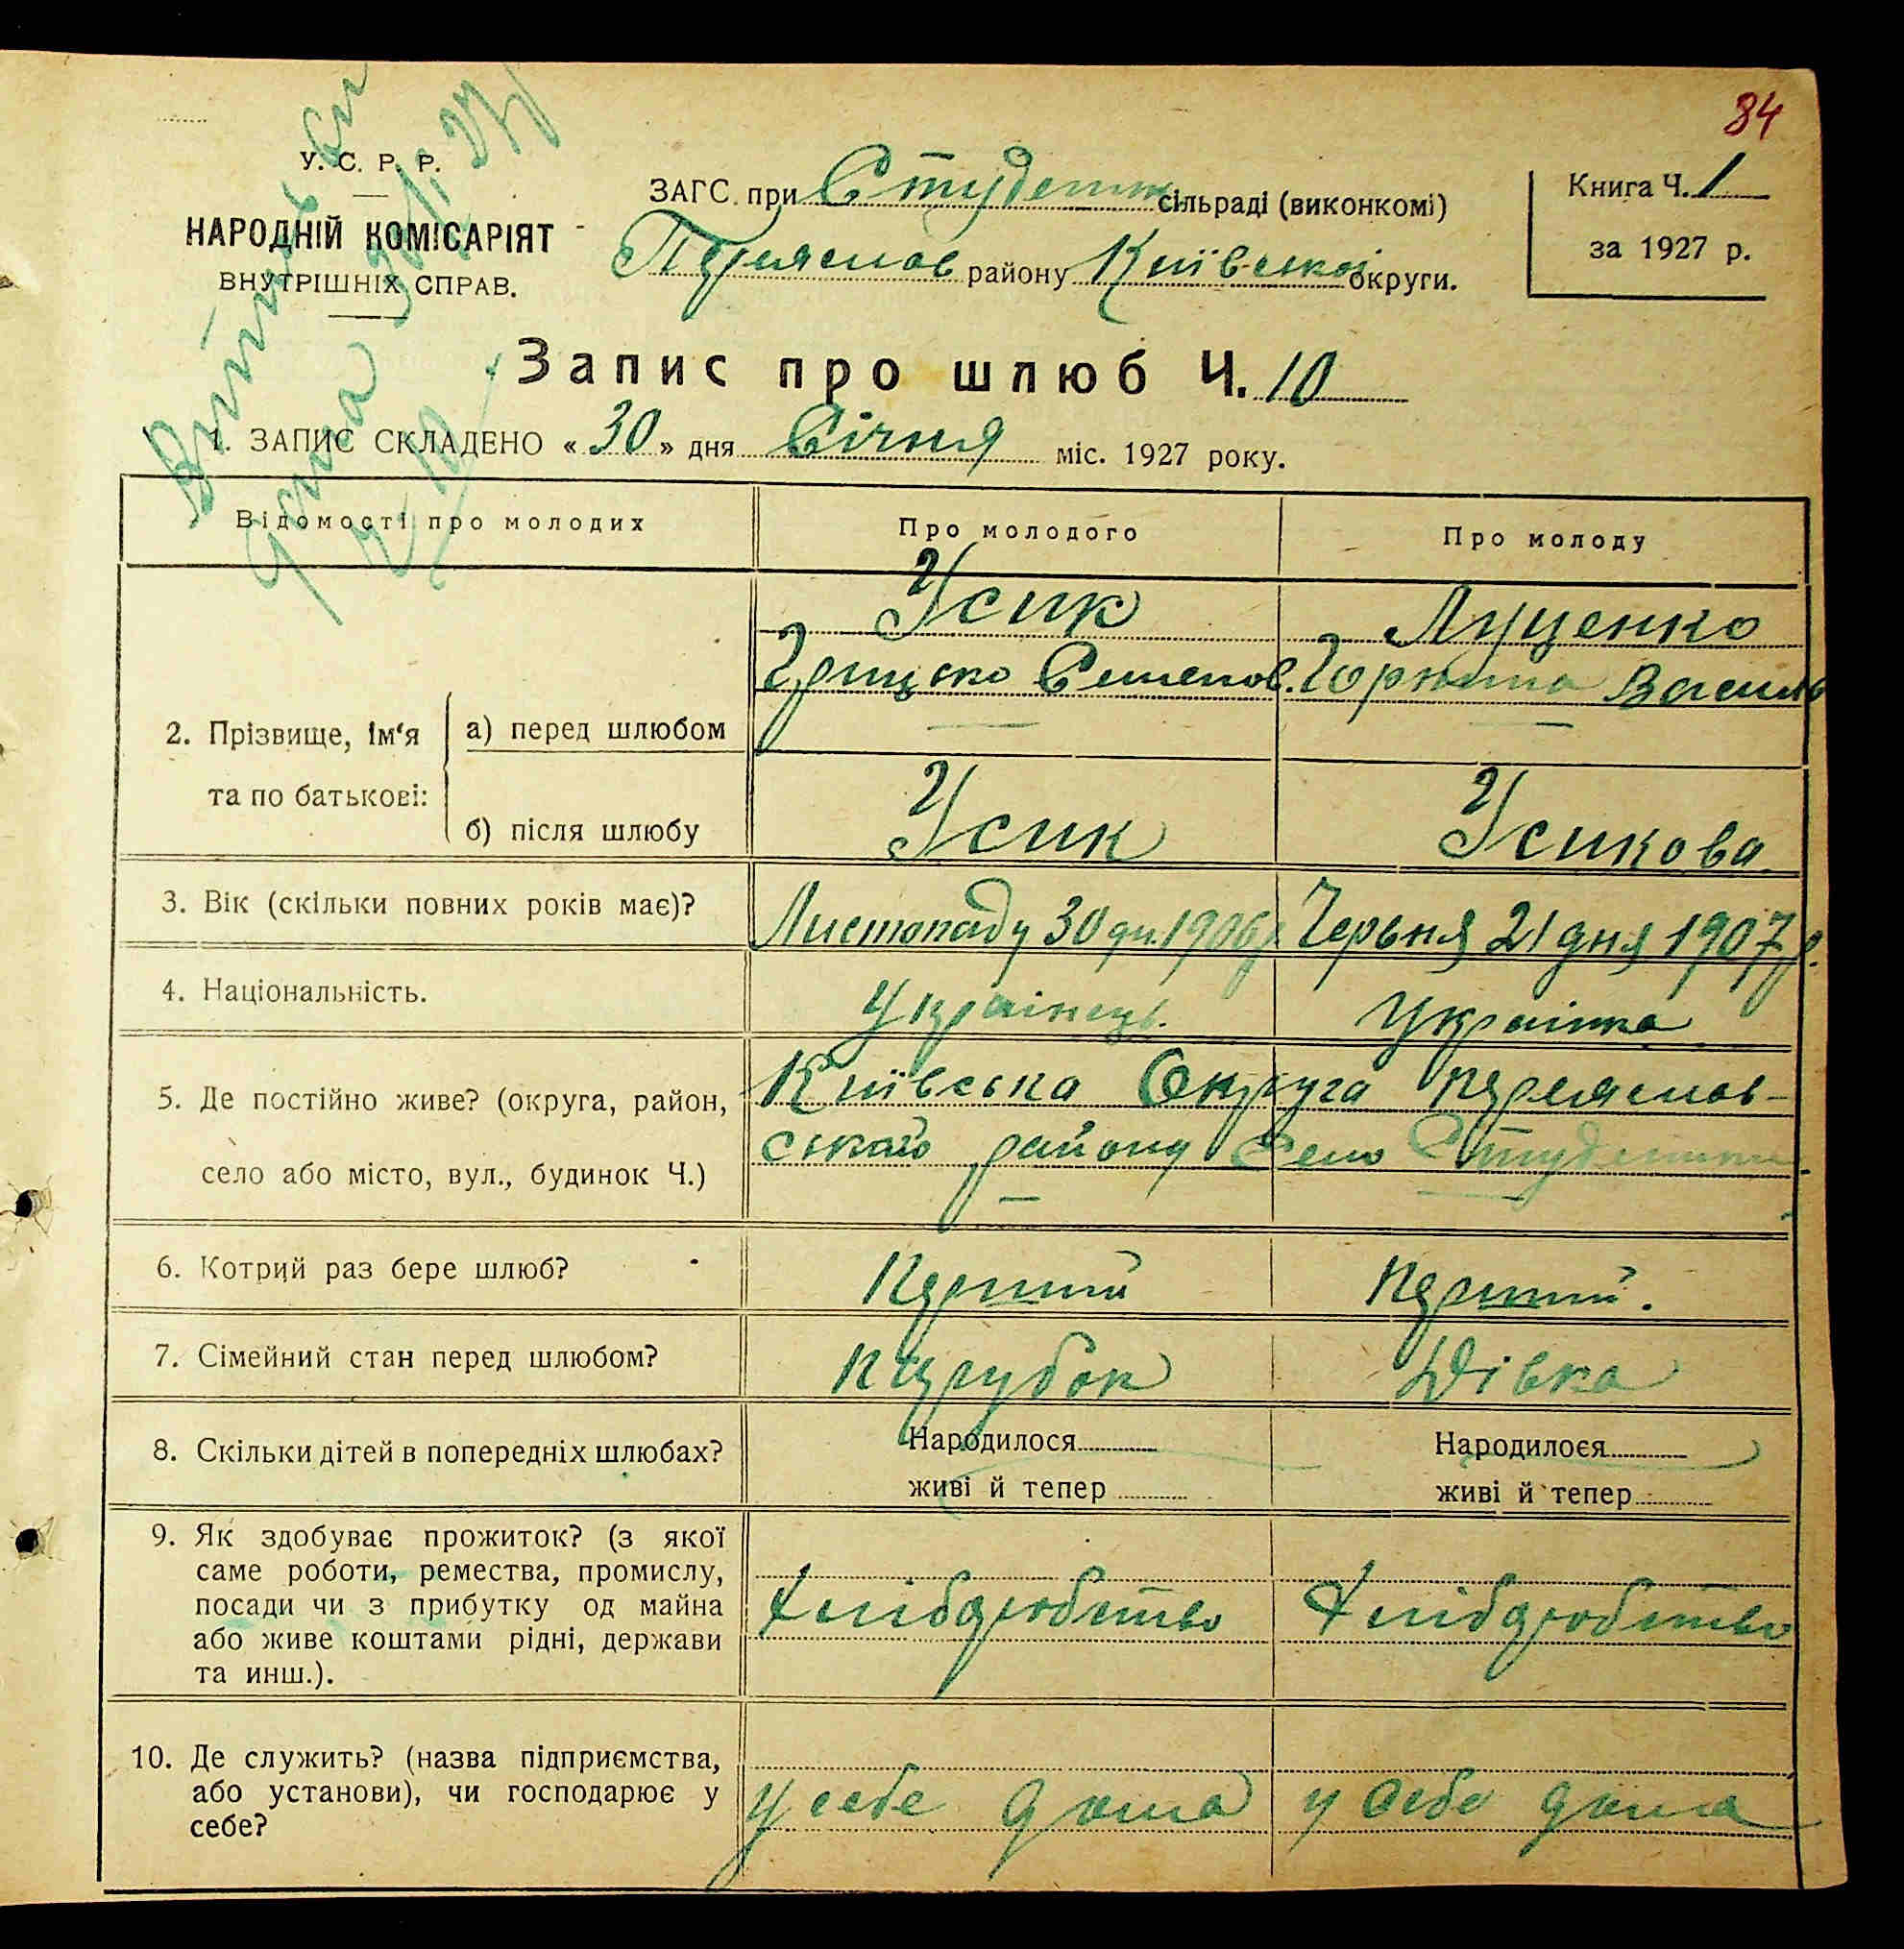 84
У. С. Р. Р.
НАРОДНІЙ КОМІСАРІЯТ
ВНУТРІШНІХ СПРАВ.
ЗАГС при Студенк сільраді (виконкомі)
Переяслов району Київської округи.
Книга Ч. 1
за 1927 р.
Запис про шлюб Ч. 10
1. ЗАПИС СКЛАДЕНО «30» дня Січня міс. 1927 року.
Відомості про молодих
Про молодого
Про молоду
2. Прізвище, ім‘я
та по батькові:
а) перед шлюбом
Усик
Грицько Семенов.
Луценко
Василь
б) після шлюбу
Усик
Усикова.
3. Вік (скільки повних років має)?
Листопаду 30 дн. 1906 р
Червня 21 дня 1907 р.
4. Національність.
Українець.
Українка
5. Де постійно живе? (округа, район,
село або місто, вул., будинок Ч.)
Київська Округа Переяслов-
ського району Село Студеники.
6. Котрий раз бере шлюб?
Перший
Перший.
7. Сімейний стан перед шлюбом?
Парубок
Дівка
8. Скільки дітей в попередніх шлюбах?
Народилося
живі й тепер
Народилося
живі й тепер
9. Як здобуває прожиток? (з якої
саме роботи, ремества, промислу,
посади чи з прибутку од майна
або живе коштами рідні, держави
та инш.).
Хліборобство
Хліборобство
10. Де служить? (назва підприємства,
або установи), чи господарює у
себе?
у себе дома
у себе дома